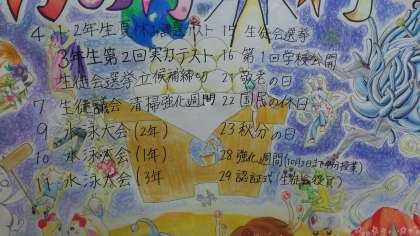 4 1,2年生夏休み課題テスト 15 生徒会選挙
3年生第2回実力テスト 16 第1回学校公開
生徒会選挙立候補締切 21 敬老の日
7 生徒議会 清掃強化週間 22 国民の休日
9 水泳大会(2年) 23 秋分の日
10 水泳大会(1年) 28 強化週間(10月2日まで 授業)
11 水泳大会(3年 29 認証式(生徒会役員)